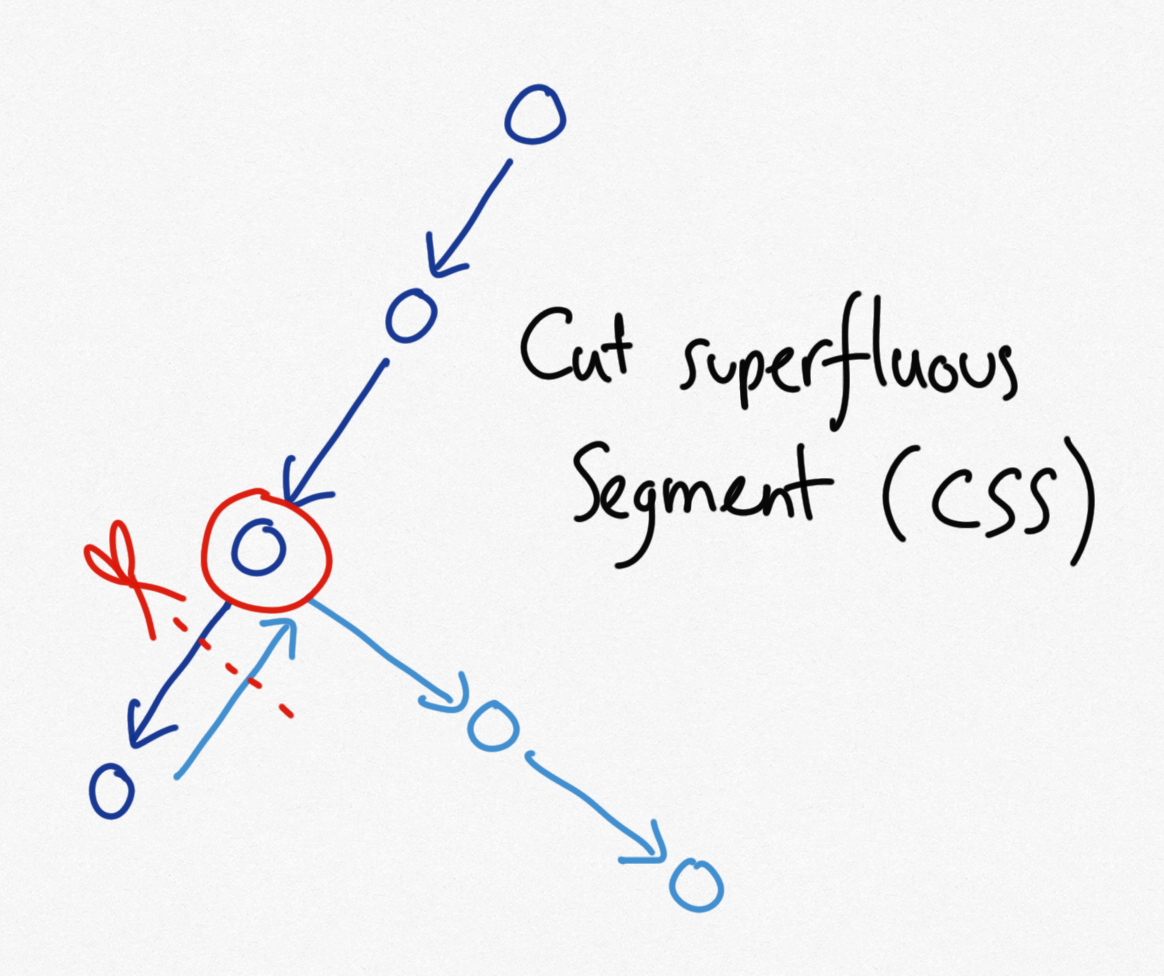 Cut superfluous
Segment (CSS)